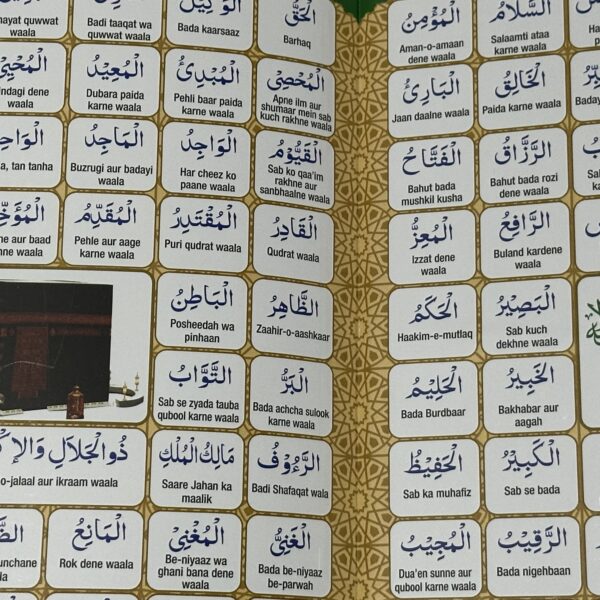 السَّلَامُ
Salaamti ataa
karne waala
الْمُؤْمِنُ
Aman-o-amaan
dene waala
الْخَالِقُ
Paida karne waala
الْبَارِئُ
Jaan daalne waala
الرَّزَّاقُ
Bahut bada rozi
dene waala
الْفَتَّاحُ
Bahut bada
mushkil kusha
الرَّافِعُ
Buland kardene
waala
الْمُعِزُّ
Izzat dene
waala
الْبَصِيْرُ
Sab kuch
dekhne waala
الْحَكَمُ
Haakim-e-mutlaq
الْخَبِيْرُ
Bakhabar aur
aagah
الْحَلِيْمُ
Bada Burdbaar
الْكَبِيْرُ
Sab se bada
الْحَفِيْظُ
Sab ka muhafiz
الرَّقِيْبُ
Bada nigehbaan
الْمُجِيْبُ
Dua'en sunne aur
qubool karne waala
الْحَقُّ
Barhaq
الْوَكِيْلُ
Bada kaarsaaz
Badi taaqat wa
quwwat waala
quwwat
waala
الْمُحْصِيْ
Apne ilm aur
shumaar mein sab
kuch rakhne waala
الْمُبْدِئُ
Pehli baar paida
karne waala
الْمُعِيْدُ
Dubara paida
karne waala
الْمُحْيِيْ
dene
waala
الْقَيُّوْمُ
Sab ko qaa'im
rakhne aur
sanbhaalne waala
الْوَاجِدُ
Har cheez ko
paane waala
الْمَاجِدُ
Buzrugi aur badayi
waala
tan tanha
الْقَادِرُ
Qudrat waala
الْمُقْتَدِرُ
Puri qudrat waala
الْمُقَدِّمُ
Pehle aur aage
karne waala
aur baad
waala
الظَّاهِرُ
Zaahir-o-aashkaar
الْبَاطِنُ
Posheedah wa
pinhaan
الْبَرُّ
Bada achcha sulook
karne waala
التَّوَّابُ
Sab se zyada tauba
qubool karne waala
الرَّءُوْفُ
Badi Shafaqat wala
مَالِكُ الْمُلْكِ
Saare Jahan ka
maalik
ذُو الْجَلَالِ
o-jalaal aur ikraam waala
الْغَنِيُّ
Bada be-niyaaz
be-parwah
الْمُغْنِيْ
Be-niyaaz wa
ghani bana dene
waala
الْمَانِعُ
Rok dene waala